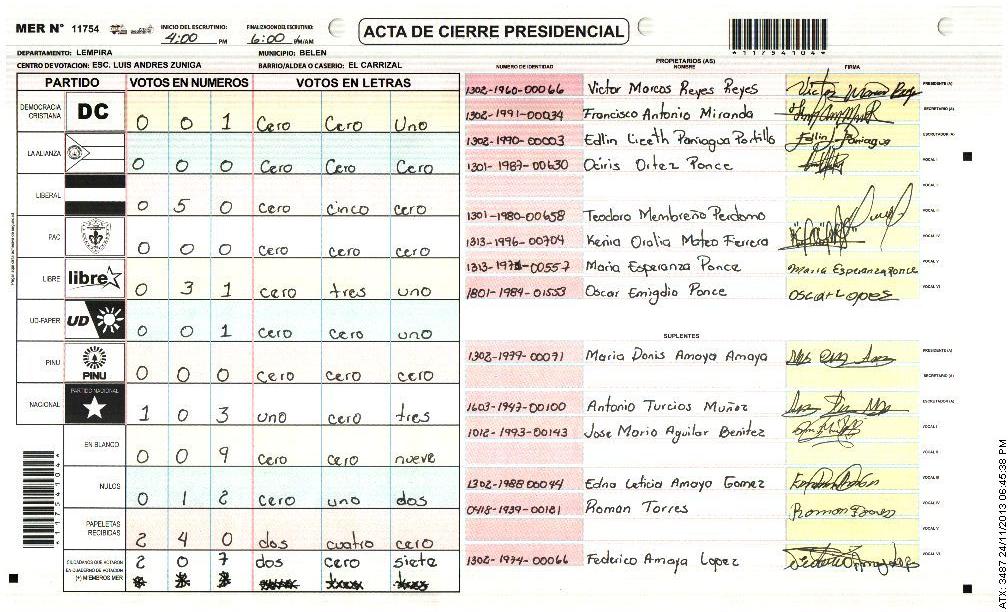 MER N° 11754
INICIO DEL ESCRUTINIO:
4:00 PM
FINALIZACION DEL ESCRUTINIO:
6:00 PM/AM
ACTA DE CIERRE PRESIDENCIAL
*11754104*
DEPARTAMENTO: LEMPIRA
MUNICIPIO: BELEN
CENTRO DE VOTACION: ESC. LUIS ANDRES ZUNIGA
BARRIO/ALDEA O CASERIO: EL CARRIZAL
PARTIDO VOTOS EN NUMEROS VOTOS EN LETRAS
DEMOCRACIA CRISTIANA DC 0 0 1 Cero Cero Uno
LA ALIANZA 0 0 0 Cero Cero Cero
LIBERAL 0 5 0 cero cinco cero
PAC 0 0 0 cero cero cero
LIBRE libre 0 3 1 cero tres uno
UD-FAPER UD 0 0 1 cero cero uno
PINU PINU 0 0 0 cero cero cero
NACIONAL PARTIDO NACIONAL 1 0 3 uno cero tres
EN BLANCO 0 0 9 cero cero nueve
NULOS 0 1 2 cero uno dos
PAPELETAS RECIBIDAS 2 4 0 dos cuatro cero
CIUDADANOS QUE VOTARON EN CUADERNO DE VOTACION 2 0 7 dos cero siete
(+) MIEMBROS MER
PROPIETARIOS (AS)
NUMERO DE IDENTIDAD NOMBRE FIRMA
1302-1960-00066 Victor Marcos Reyes Reyes PRESIDENTE (A)
1302-1991-00034 Francisco Antonio Miranda SECRETARIO (A)
1302-1990-00003 Edlin Liceth Paniagua Portillo Edlin Paniagua ESCRUTADOR (A)
1301-1987-00630 Osiris Ortez Ponce VOCAL I
VOCAL II
1301-1980-00658 Teodoro Membreño Perdomo VOCAL III
1313-1996-00704 Kenia Oralia Mateo Ferrera VOCAL IV
Maria Esperanza Ponce Maria Esperanza Ponce VOCAL V
1801-1984-01553 Oscar Emigdio Ponce Oscar Lopes VOCAL VI
SUPLENTES
1302-1979-00071 Maria Donis Amaya Amaya PRESIDENTE (A)
SECRETARIO (A)
1603-1947-00100 Antonio Turcios Muñoz ESCRUTADOR (A)
1012-1993-00143 Jose Mario Aguilar Benitez VOCAL I
VOCAL II
1302-1988 00044 Edna Leticia Amaya Gomez VOCAL III
0418-1939-00181 Roman Torres VOCAL IV
VOCAL V
1302-1974-00066 Federico Amaya Lopez VOCAL VI
*11754104*
ATX: 3487 24/11/2013 06:45:38 PM